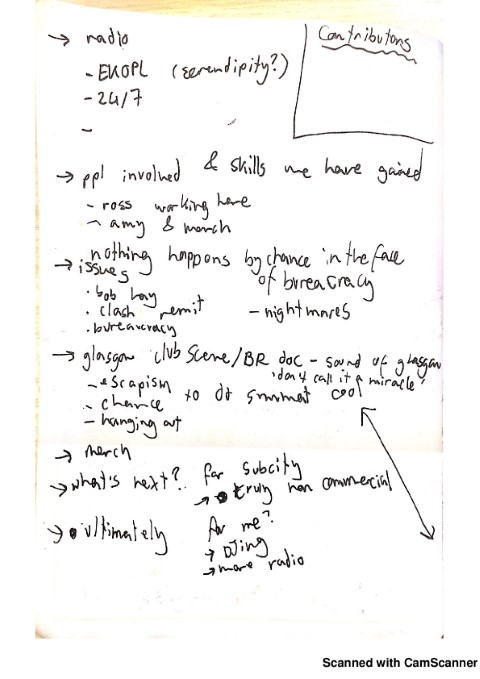 → radio
- EKOPL (serendipity?)
- 24/7
-
Contributors
→ ppl involved & skills we have gained
- ross working here
- amy & merch
nothing happens by chance in the face of bureacracy
- nightmares
→ issues
· bob hay
· clash permit
· bureaucracy
→ glasgow club scene/BR doc - sound of glasgow
'don't call it a miracle'
- escapism
- chance to do summat cool
- hanging out
→ merch
→ what's next? for subcity
→ truly non commercial
→ ultimately for me?
→ DJing
→ more radio
Scanned with CamScanner